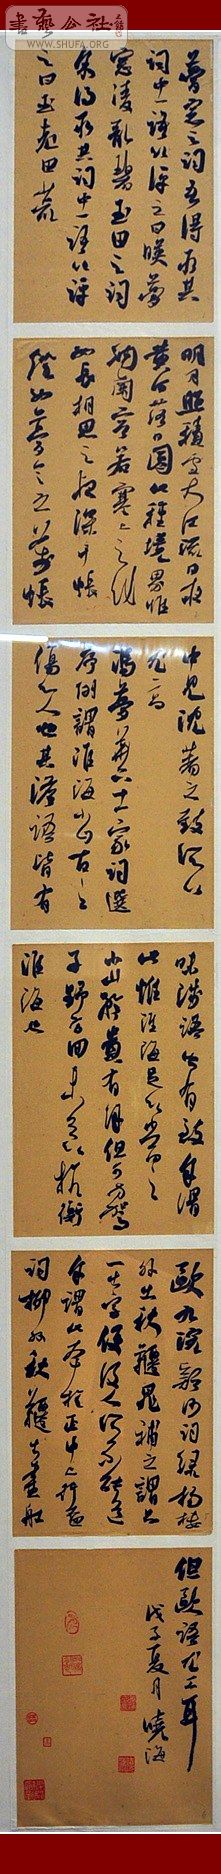 書藝公社
WWW.SHUFA.ORG
夢窗之詞吾得取其
詞中一語以評之曰映夢
窗凌亂碧玉田之詞
余得取其詞中一語以評
之曰玉老田荒
明月照積雪大江流日夜
黃河落日圓此種境界惟
納蘭容若塞上之作
如長相思之夜深千帳
燈如夢令之萬帳
中見沈著之致所以
尤高
馮夢華六十一家詞選
序例謂淮海小山古之
傷心人也其淡語皆有
味淺語皆有致余謂
此惟淮海足以當之
小山矜貴有餘但可方駕
子野方回未足以抗衡
淮海也
歐九浣溪沙詞綠楊樓
外出秋韆晁補之謂只
一出字便後人所不能道
余謂此本於正中上行杯
詞柳外秋韆出畫牆
但歐語尤工耳
戊子夏月曉海